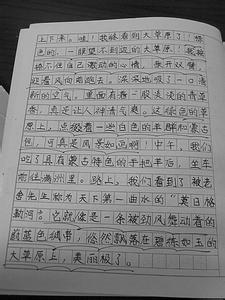 上下来。哇！我终于看到大草原了！绿
色的，一眼望不到边的大草原！我按
捺不住自己激动的心情，张开双臂，
迎着风向前跑去。深深地吸了一口清
新的空气。里面有着一股淡淡的青草
香，真是让人神清气爽。这绿色的草
原上，点缀着一些白色的羊群和蒙古
包，可真是风景如画啊！中午，我们
吃了具有蒙古特色的手把羊后，坐车
前往满洲里。路上，我们看到了被老
舍先生称为天下第一曲水的“莫日格
勒河”。它就像是一条被劲风舞动着的
蔚蓝色绸带，悠然飘落在碧绿如玉的
大草原上，美丽极了。